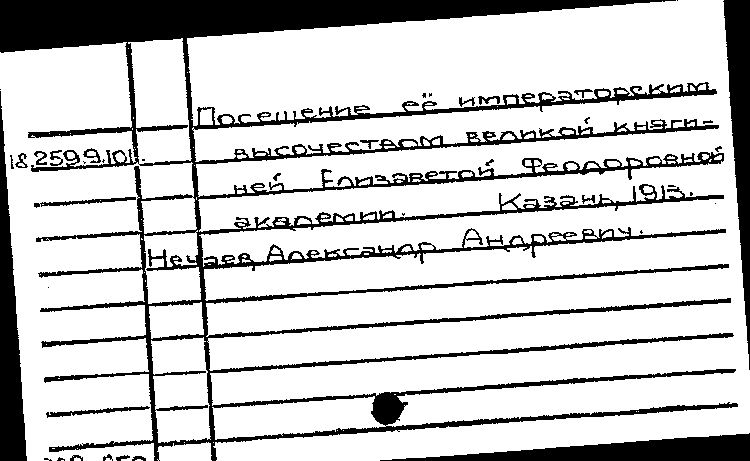 Посещение её императорским
18.259.9.101. высочеством великой княги-
ней Елизаветой Феодоровной
академии. Казань, 1913.
Нечаев, Александр Андреевич.